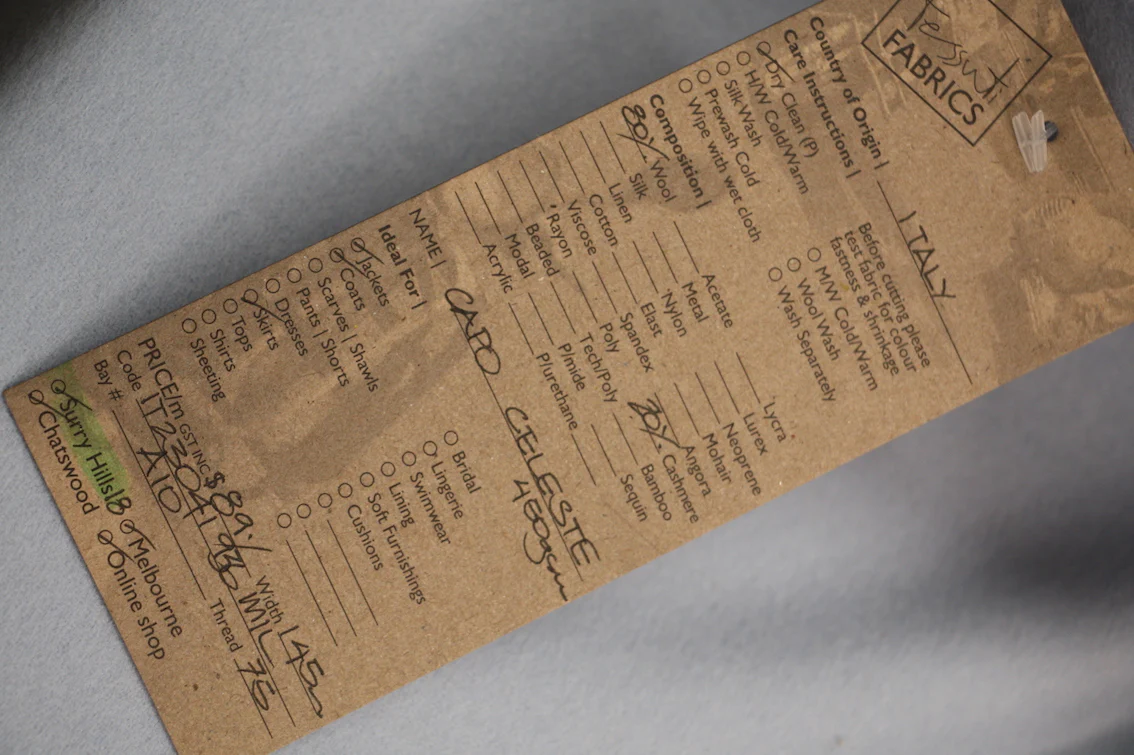 Tessuti
FABRICS
Country of Origin | ITALY
Care Instructions |
Dry Clean (P)
H/W Cold/Warm
Silk Wash
Prewash Cold
Wipe with wet cloth
Before cutting please
test fabric for colour
fastness & shrinkage
M/W Cold/Warm
Wool Wash
Wash Separately
Composition |
80% Wool
Silk
Linen
Cotton
Viscose
Rayon
Beaded
Modal
Acrylic
Acetate
Metal
Nylon
Elast
Spandex
Poly
Tech/Poly
P/mide
P/urethane
Lycra
Lurex
Neoprene
Mohair
Angora
20% Cashmere
Bamboo
Sequin
NAME | CAPO CELESTE
460gsm
Ideal For |
Jackets
Coats
Scarves | Shawls
Pants | Shorts
Dresses
Skirts
Tops
Shirts
Sheeting
Bridal
Lingerie
Swimwear
Lining
Soft Furnishings
Cushions
PRICE/m GST INC $89.- Width 145
Code MIL
Bay # A10 Thread 75
Surry Hills 18 Melbourne
Chatswood Online shop